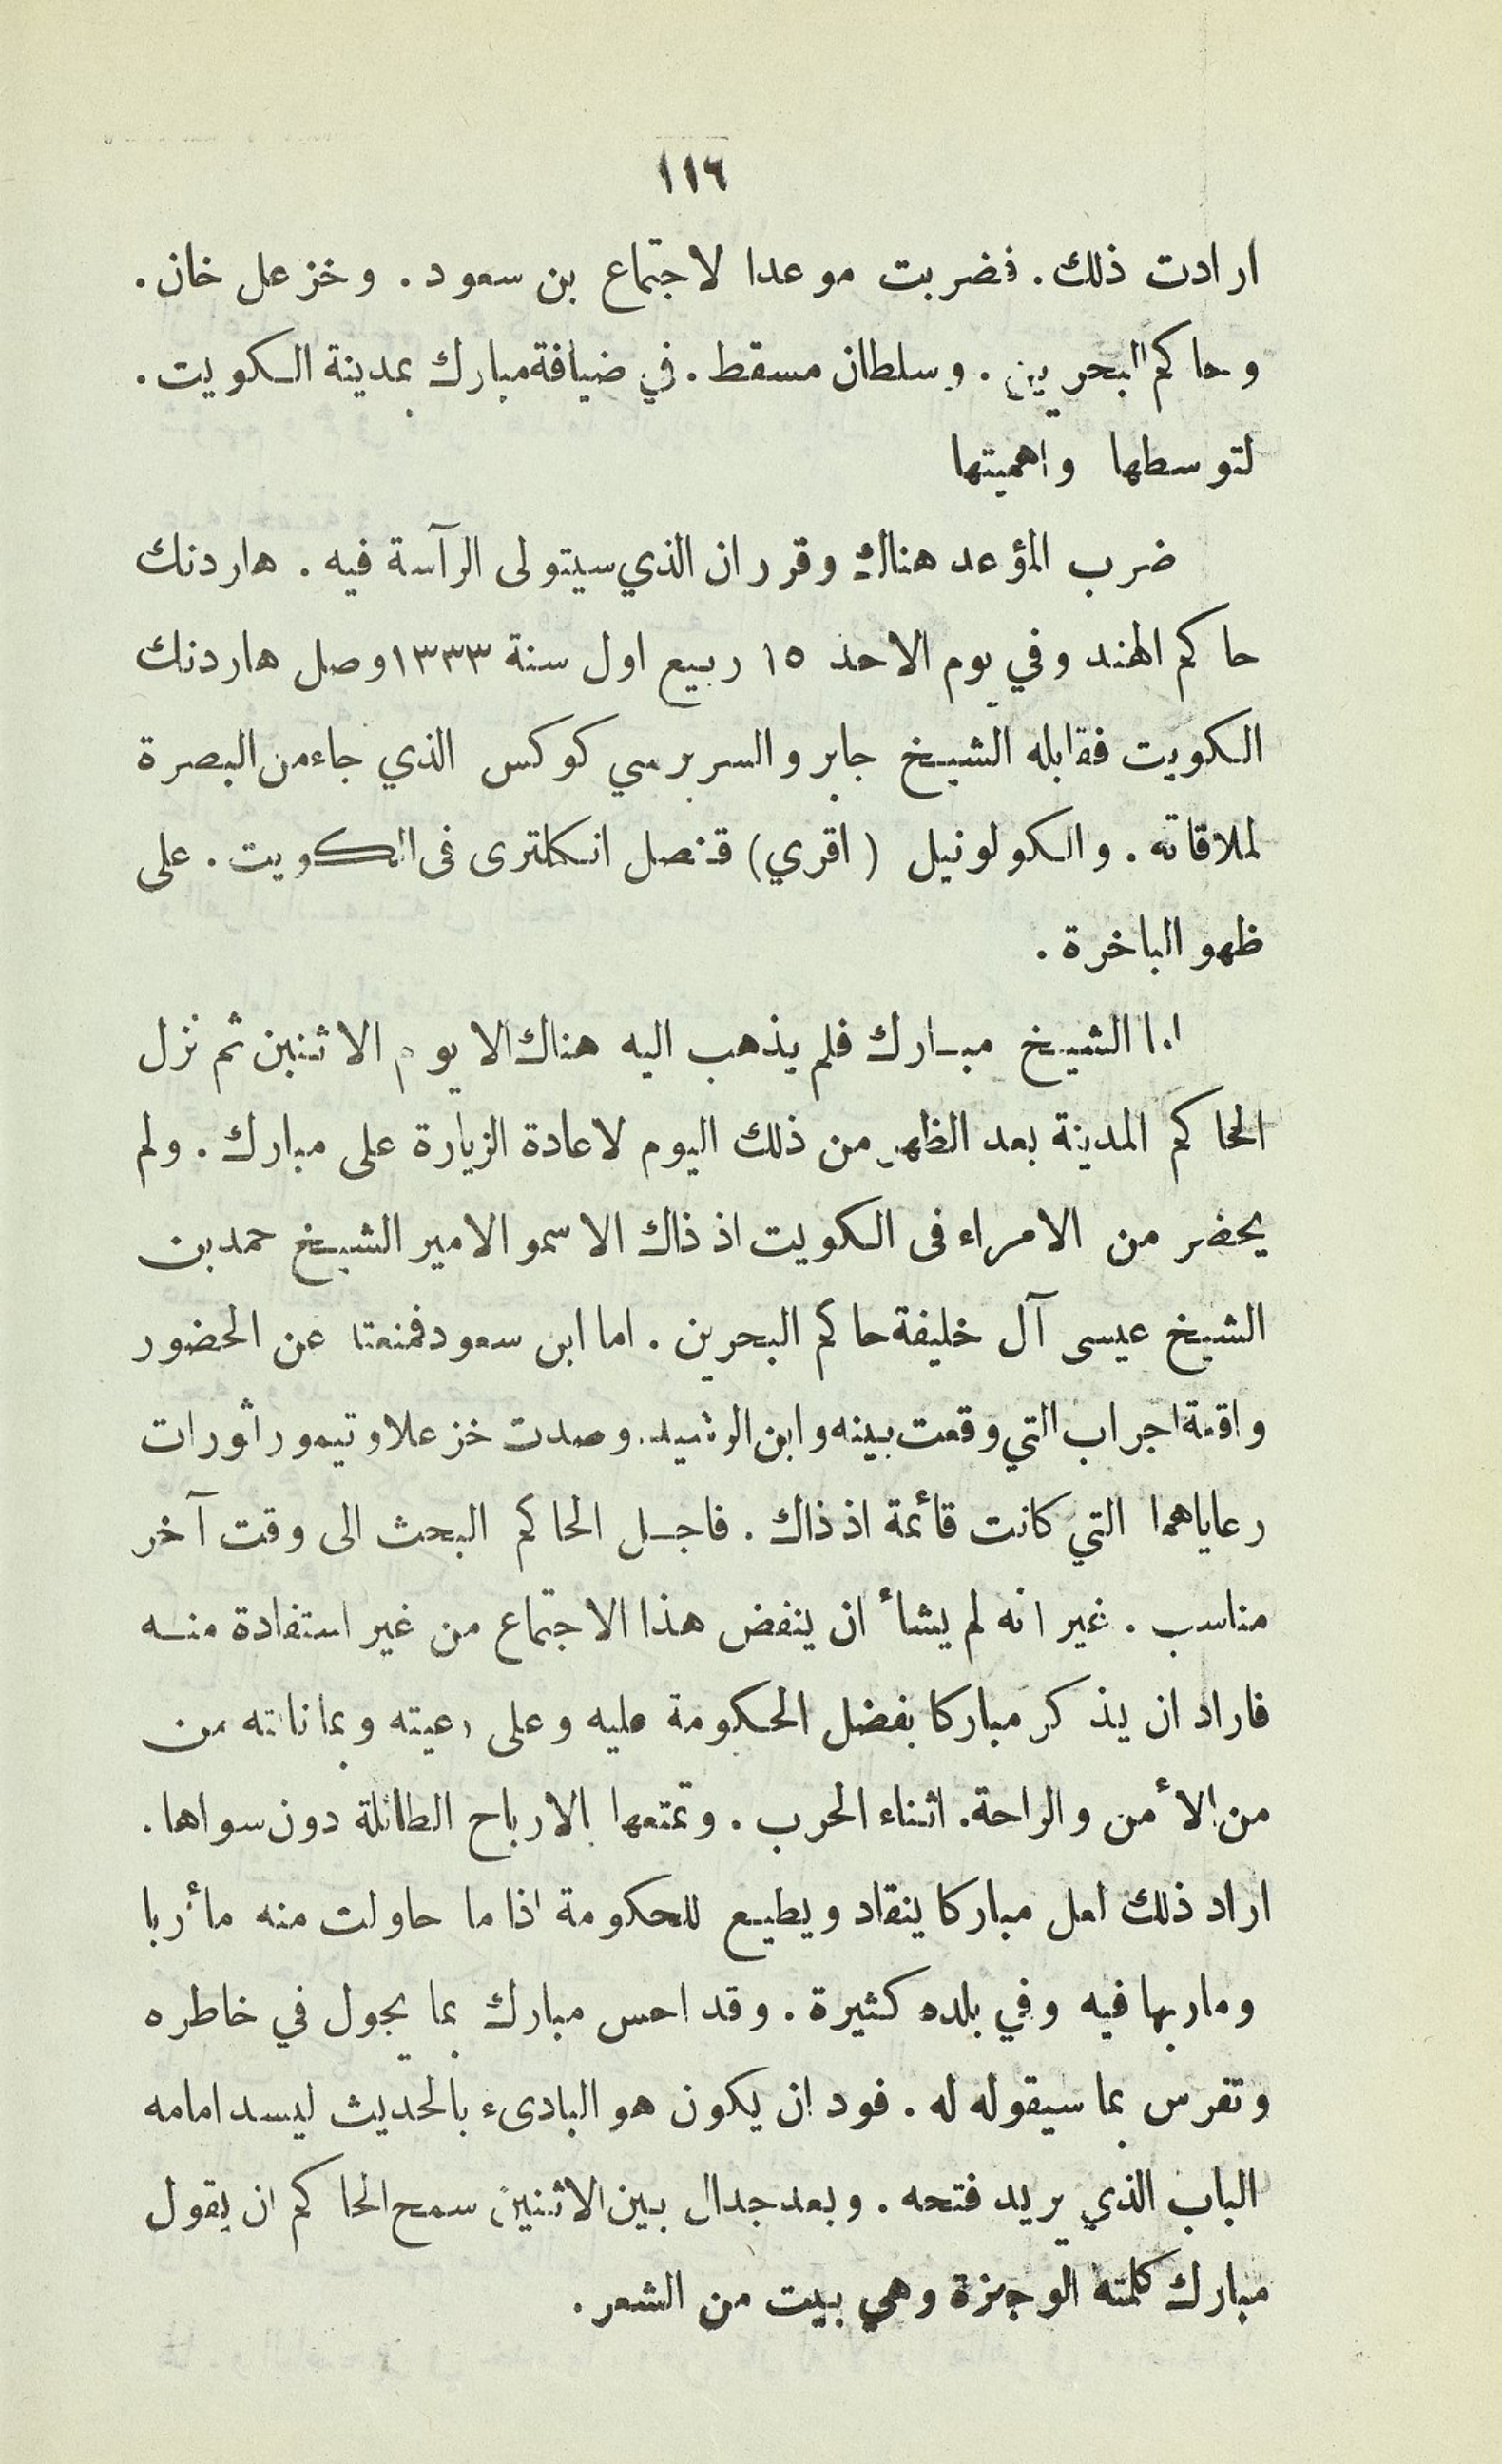 ١١٦
ارادت ذلك. فضربت موعدا لاجتماع بن سعود. وخزعل خان.
وحاكم البحرين. وسلطان مسقط. في ضيافة مبارك بمدينة الكويت.
لتوسطها واهميتها
ضرب المؤعد هناك وقرر ان الذي سيتولى الرآسة فيه. هاردنك
حاكم الهند وفي يوم الاحد ١٥ ربيع اول سنة ١٣٣٣ وصل هاردنك
الكويت فقابله الشيخ جابر والسر برسي كوكس الذي جاء من البصرة
لملاقاته. والكولونيل (اقري) قنصل انكلترى فى الكويت. على
ظهو الباخرة.
اما الشيخ مبارك فلم يذهب اليه هناك الا يوم الاثنين ثم نزل
الحاكم المدينة بعد الظهر من ذلك اليوم لاعادة الزيارة على مبارك. ولم
يحضر من الامراء فى الكويت اذ ذاك الا سمو الامير الشيخ حمد بن
الشيخ عيسى آل خليفة حاكم البحرين. اما ابن سعود فمنعته عن الحضور
واقعة اجراب التي وقعت بينه وابن الرشيد. وصدت خزعلا وتيمور اثورات
رعاياهما التي كانت قائمة اذ ذاك. فاجل الحاكم البحث الى وقت آخر
مناسب. غير انه لم يشأ ان ينفض هذا الاجتماع من غير استفادة منه
فاراد ان يذكر مباركا بفضل الحكومة عليه وعلى رعيته وبما نالته من
من الأمن والراحة. اثناء الحرب. وتمتعها بالارباح الطائلة دون سواها.
اراد ذلك لعل مباركا ينقاد ويطيع للحكومة اذا ما حاولت منه مأربا
وماربها فيه وفي بلده كثيرة. وقد احس مبارك بما يجول في خاطره
وتفرس بما سيقوله له. فود ان يكون هو البادىء بالحديث ليسد امامه
الباب الذي يريد فتحه. وبعد جدال بين الاثنين سمح الحاكم ان يقول
مبارك كلمته الوجيزة وهي بيت من الشعر.